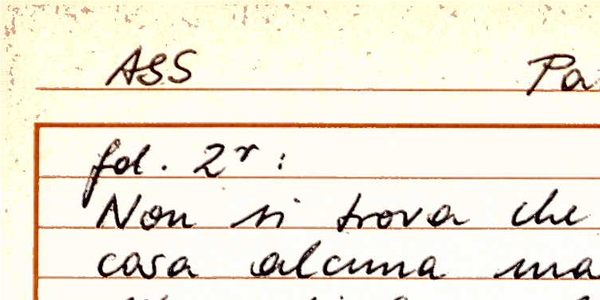 ASS Pa
fol. 2r:
Non si trova che
casa alcuna ma